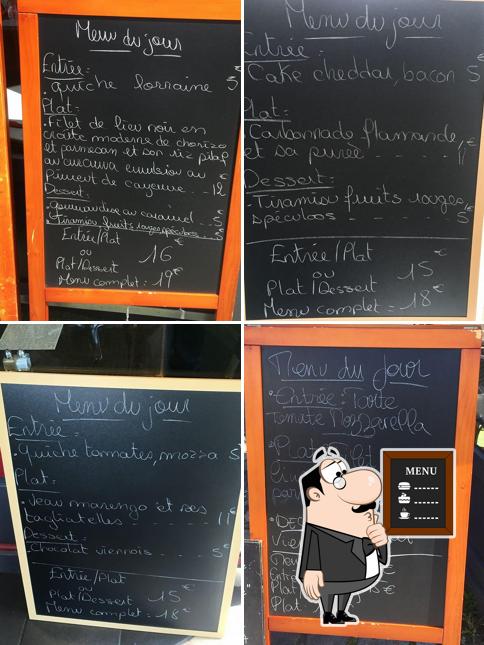 Menu du jour
Entrée:
.quiche lorraine 5€
Plat:
.Filet de lieu noir en
croûte moderne de chorizo
et parmesan et son riz pilaf
au curcuma émulsion au
Piment de cayenne...12€
Dessert:
.Gourmandise au caramel...5€
.Tiramisu fruits rouges spéculoos...5€
Entrée/Plat
ou 16€
Plat/Dessert
Menu complet: 19€
Menu du jour
Entrée:
Cake cheddar, bacon 5€
Plat:
.Carbonnade flamande
et sa purée.....11€
Dessert:
.Tiramisu fruits rouges,
spéculoos.......5€
Entrée/Plat
ou 15€
Plat/Dessert
Menu complet: 18€
Menu du jour
Entrée:
.quiche tomates, mozza 5
Plat:
.Veau marengo et ses
tagliatelles....11€
Dessert:
Chocolat viennois....5€
Entrée/Plat
ou 15€
Plat/Dessert
Menu complet: 18€
Menu du Jour
.Entrée: Tarte
Tomate Mozzarella
MENU